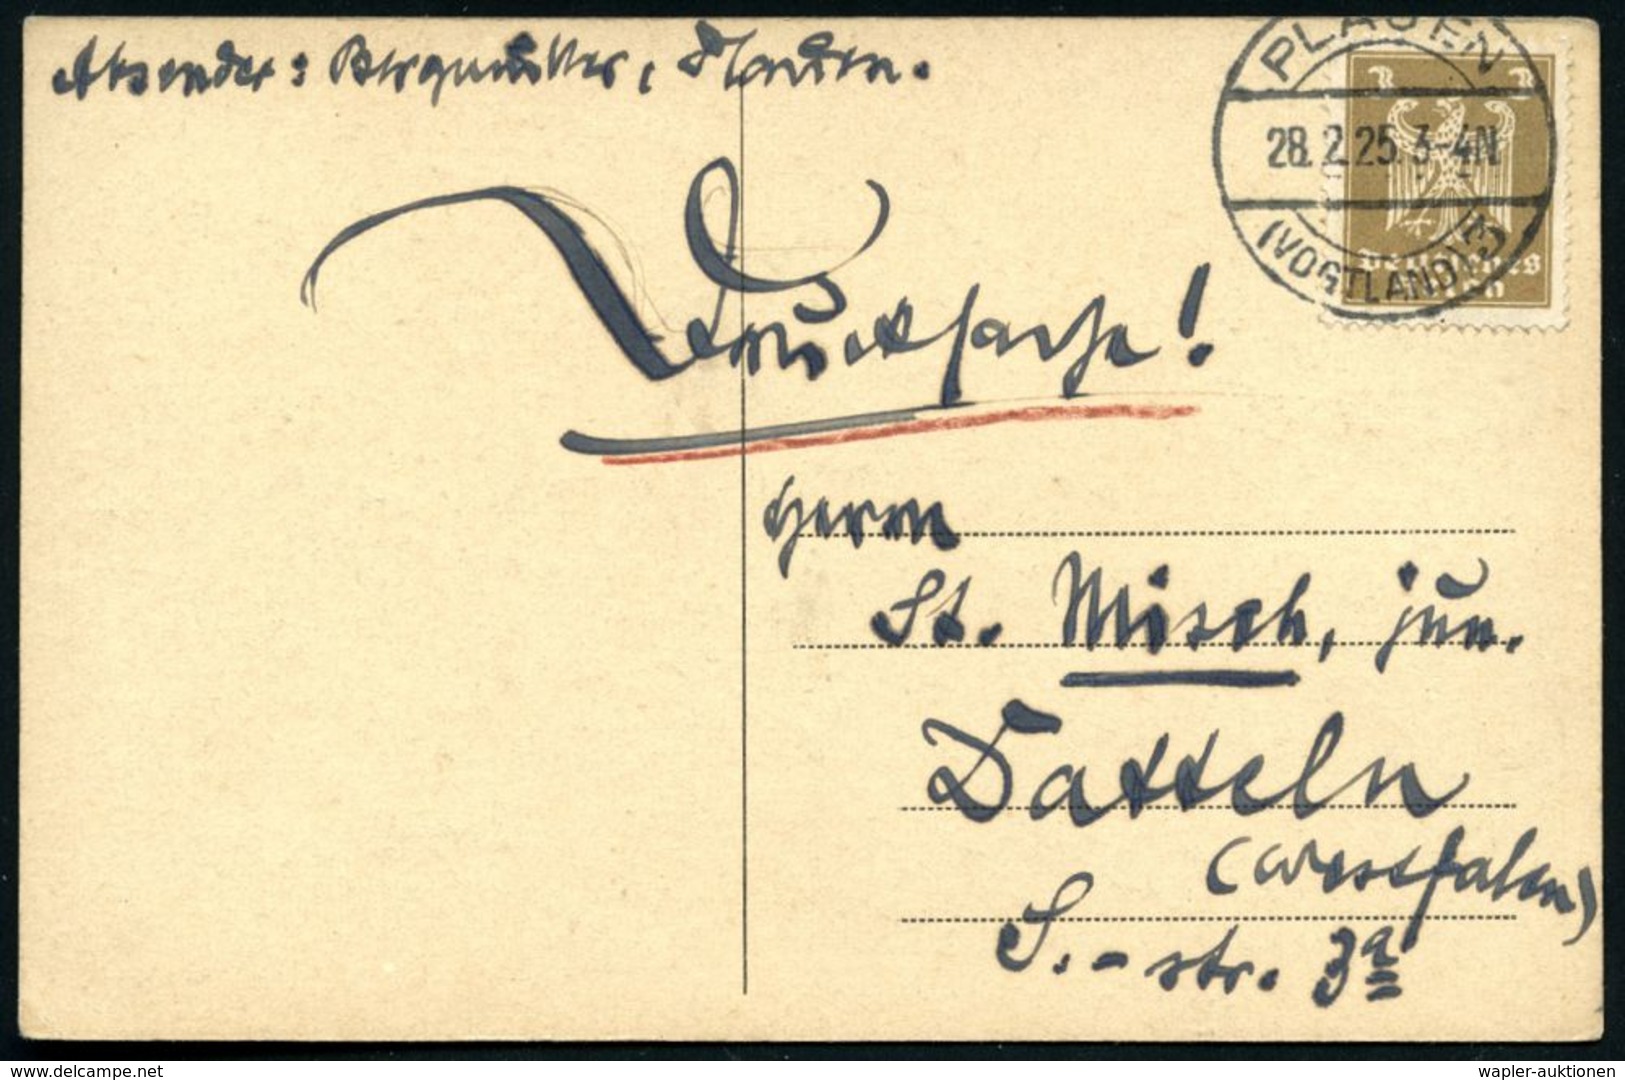 Absender: Bergmüller, Plauen.
PLAUEN
28.2.25. 3-4N
(VOGTLAND)
Deutsches
Drucksache!
Herrn
St. Misch, jun.
Datteln
(Westfalen)
S.-str. 3a
www.delcampe.net
wapler-auktionen